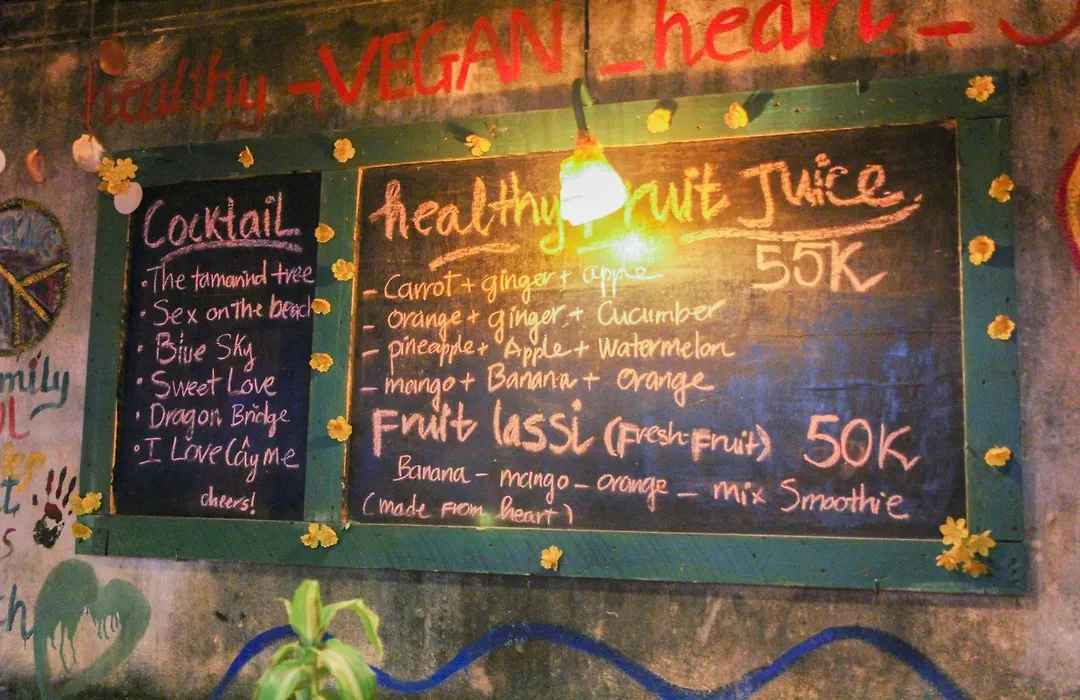 healthy - VEGAN - heart -
Cocktail
• The tamarind tree
• Sex on the beach
• Blue Sky
• Sweet Love
• Dragon Bridge
• I Love Cây me
cheers!
healthy fruit Juice
55K
- Carrot + ginger + apple
- orange + ginger + Cucumber
- pineapple + Apple + Watermelon
- mango + Banana + orange
Fruit lassi (Fresh-Fruit) 50K
Banana - mango - orange - mix Smoothie
(made From heart)